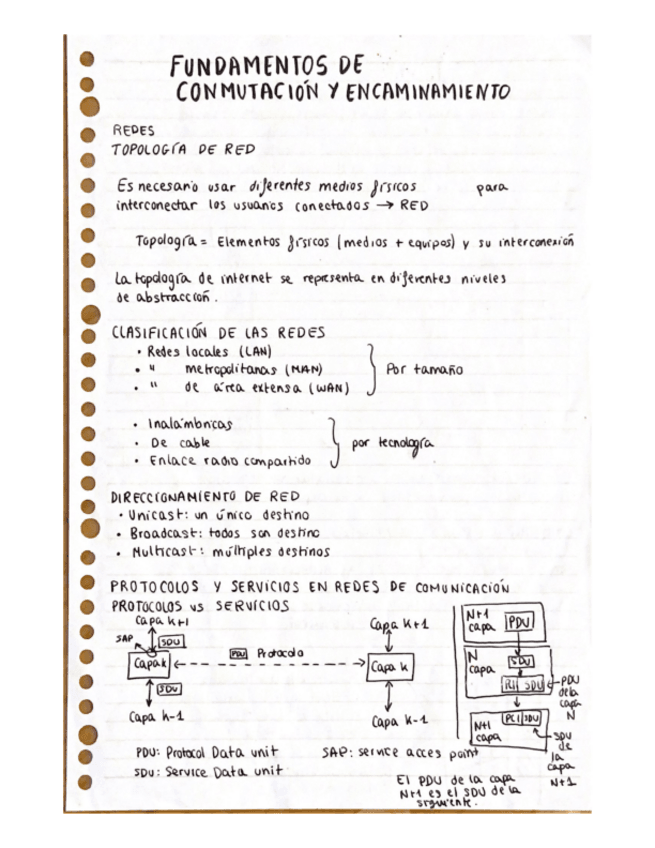 FUNDAMENTOS DE
CONMUTACIÓN Y ENCAMINAMIENTO
REDES
TOPOLOGÍA DE RED
Es necesario usar diferentes medios físicos para
interconectar los usuarios conectados → RED
Topología = Elementos físicos (medios + equipos) y su interconexión
La topología de internet se representa en diferentes niveles
de abstracción.
CLASIFICACIÓN DE LAS REDES
• Redes locales (LAN)
• " metropolitanas (MAN)
• " de área extensa (WAN)
Por tamaño
• Inalámbricas
• De cable
• Enlace radio compartido
por tecnología
DIRECCIONAMIENTO DE RED
• Unicast: un único destino
• Broadcast: todos son destino
• Multicast: múltiples destinos
PROTOCOLOS Y SERVICIOS EN REDES DE COMUNICACIÓN
PROTOCOLOS vs SERVICIOS
Capa K+1
SAP
SDU
Capa k
PDU Protocolo
SDU
Capa k-1
Capa K+1
Capa k
Capa K-1
N+1
capa
PDU
N
capa
SDU
SDU
PDU
de la
capa
N
N+1
capa
PCI SDU
SDU
de
la
capa
N+1
PDU: Protocol Data unit
SAP: service acces point
SDU: Service Data unit
El PDU de la capa
N+1 es el SDU de la
siguiente.